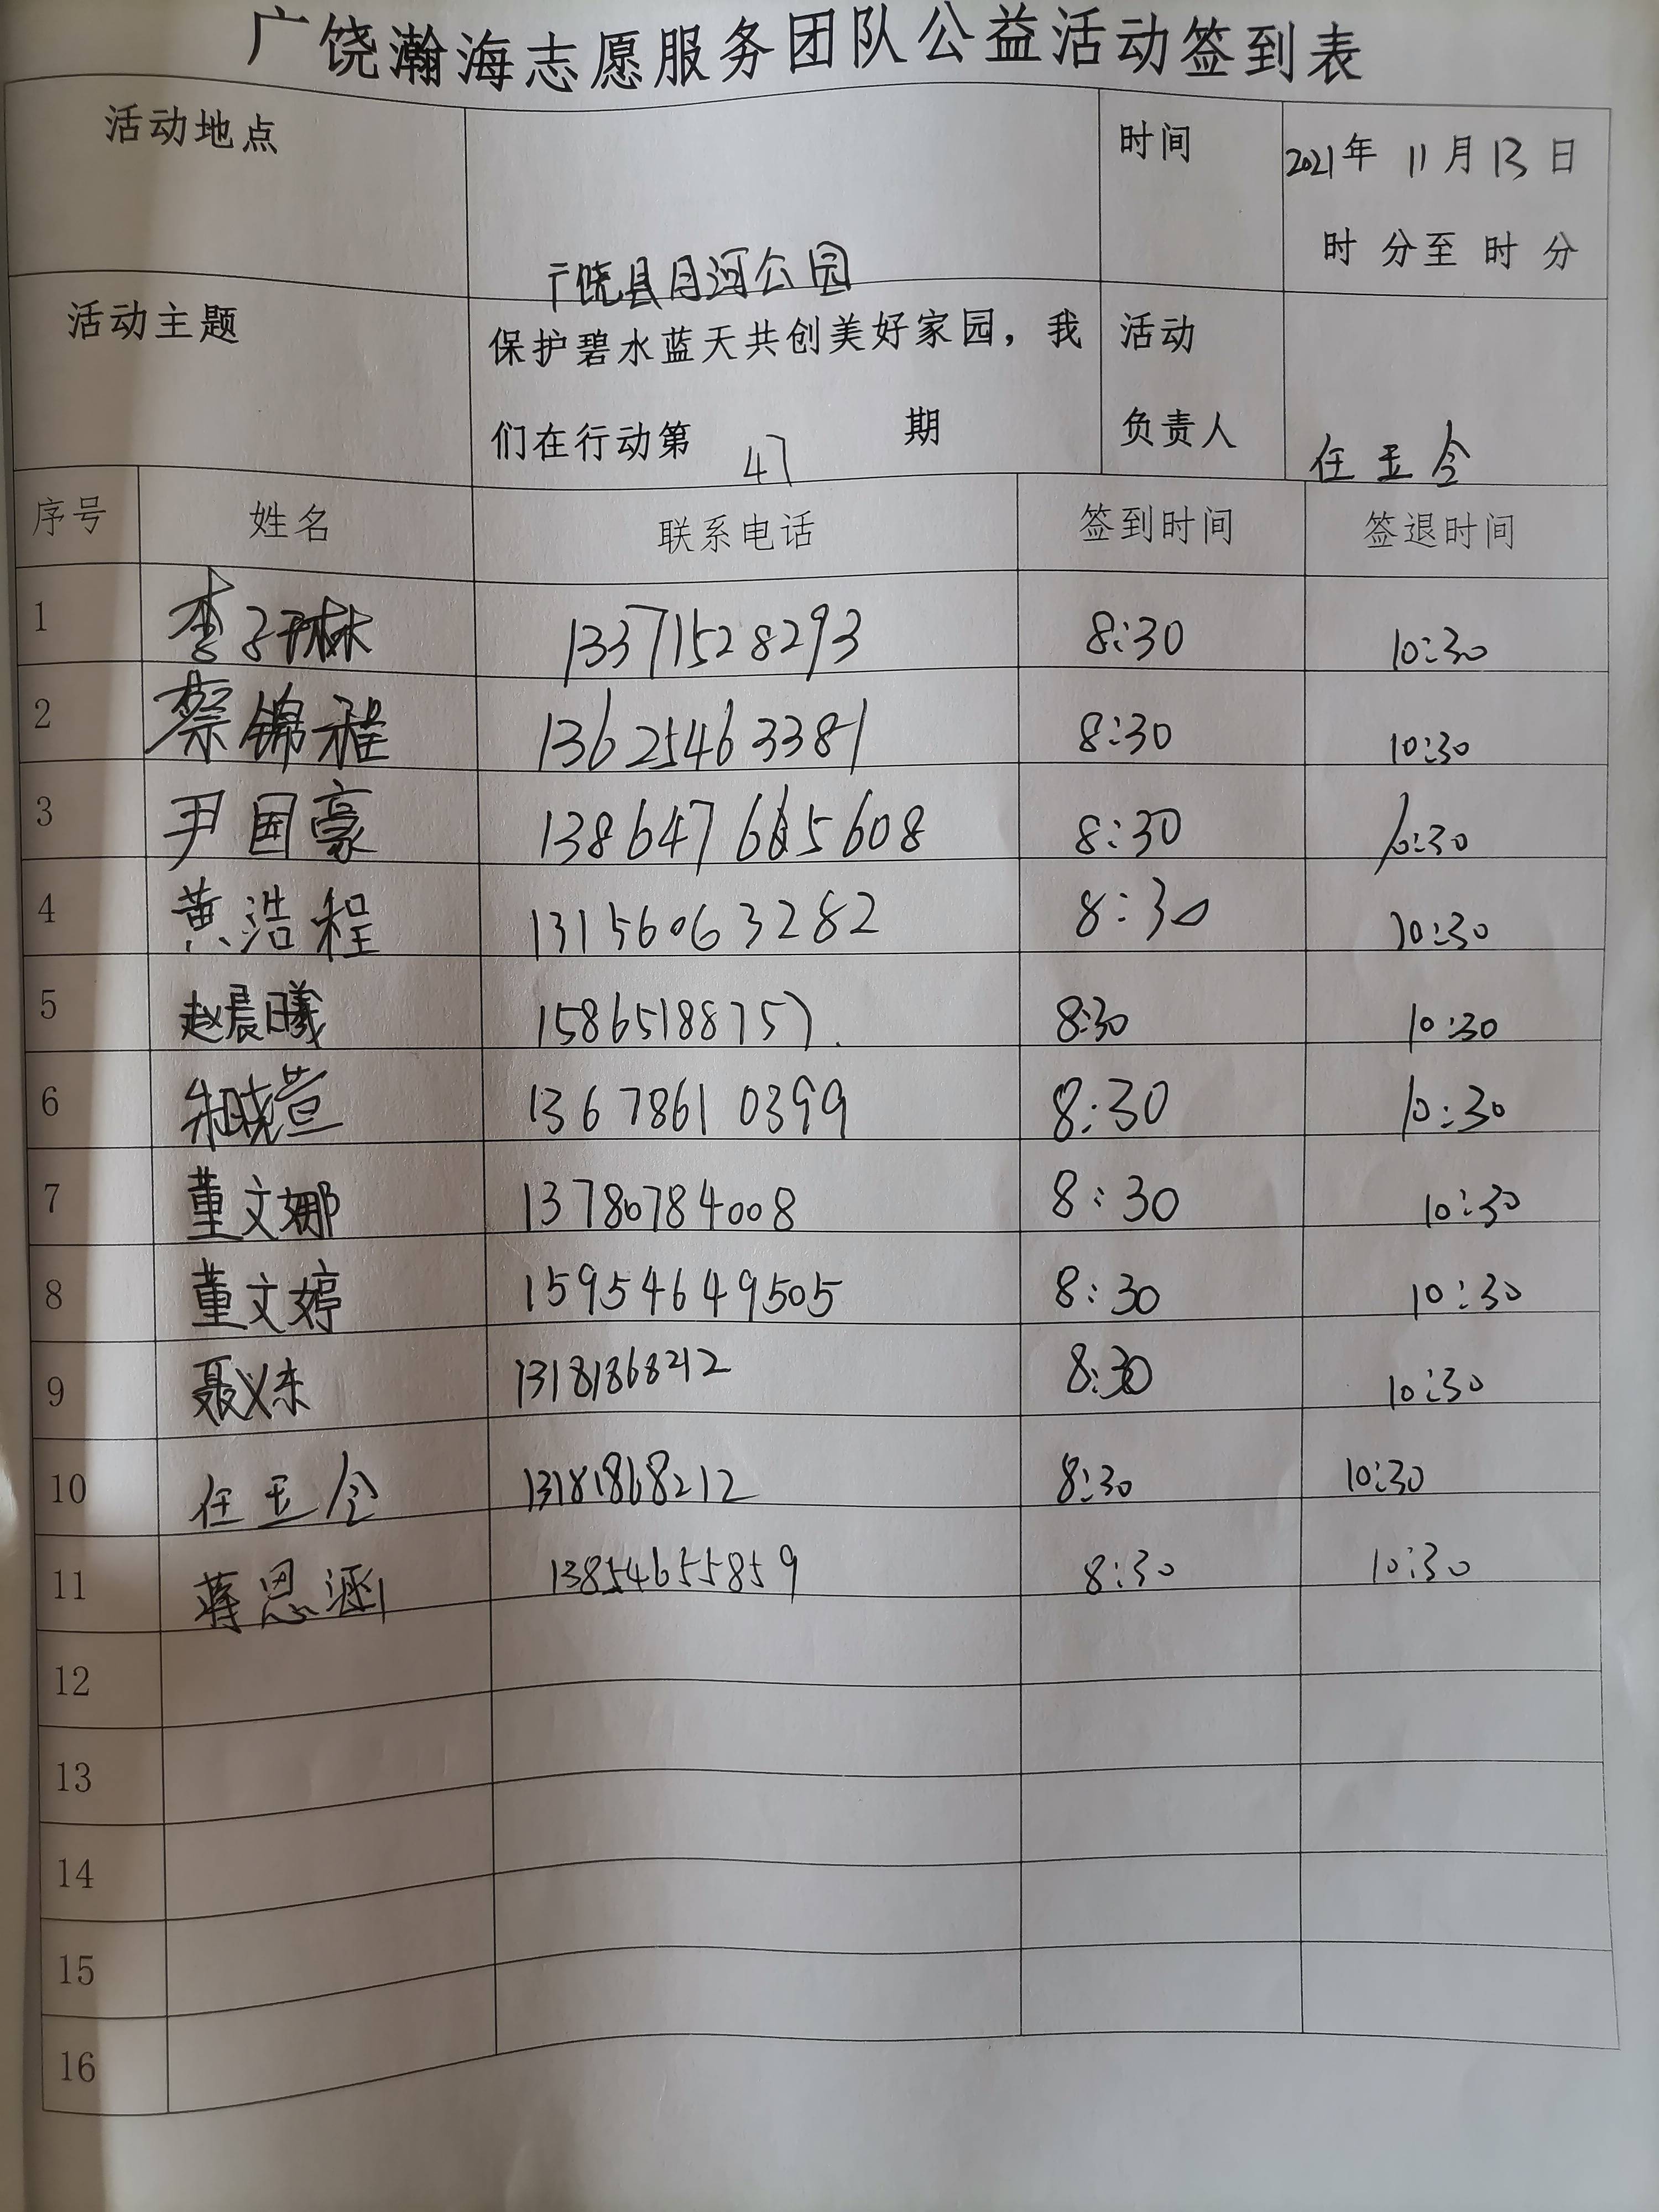 广饶瀚海志愿服务团队公益活动签到表
活动地点 广饶县月河公园 时间 2021年 11月13日
时 分至 时 分
活动主题 保护碧水蓝天共创美好家园，我 活动
们在行动第 47 期 负责人 任玉令
序号 姓名 联系电话 签到时间 签退时间
1 李子琳 13371528293 8:30 10:30
2 蔡锦程 13625463381 8:30 10:30
3 尹国豪 8:30 10:30
4 黄浩程 13156063282 8:30 10:30
5 赵晨曦 15865188757. 8:30 10:30
6 朱晓萱 13678610399 8:30 10:30
7 董文娜 13780784008 8:30 10:30
8 董文婷 15954649505 8:30 10:30
9 聂 13181868212 8:30 10:30
10 任玉令 13181868212 8:30 10:30
11 蒋恩涵 13854655859 8:30 10:30
12
13
14
15
16